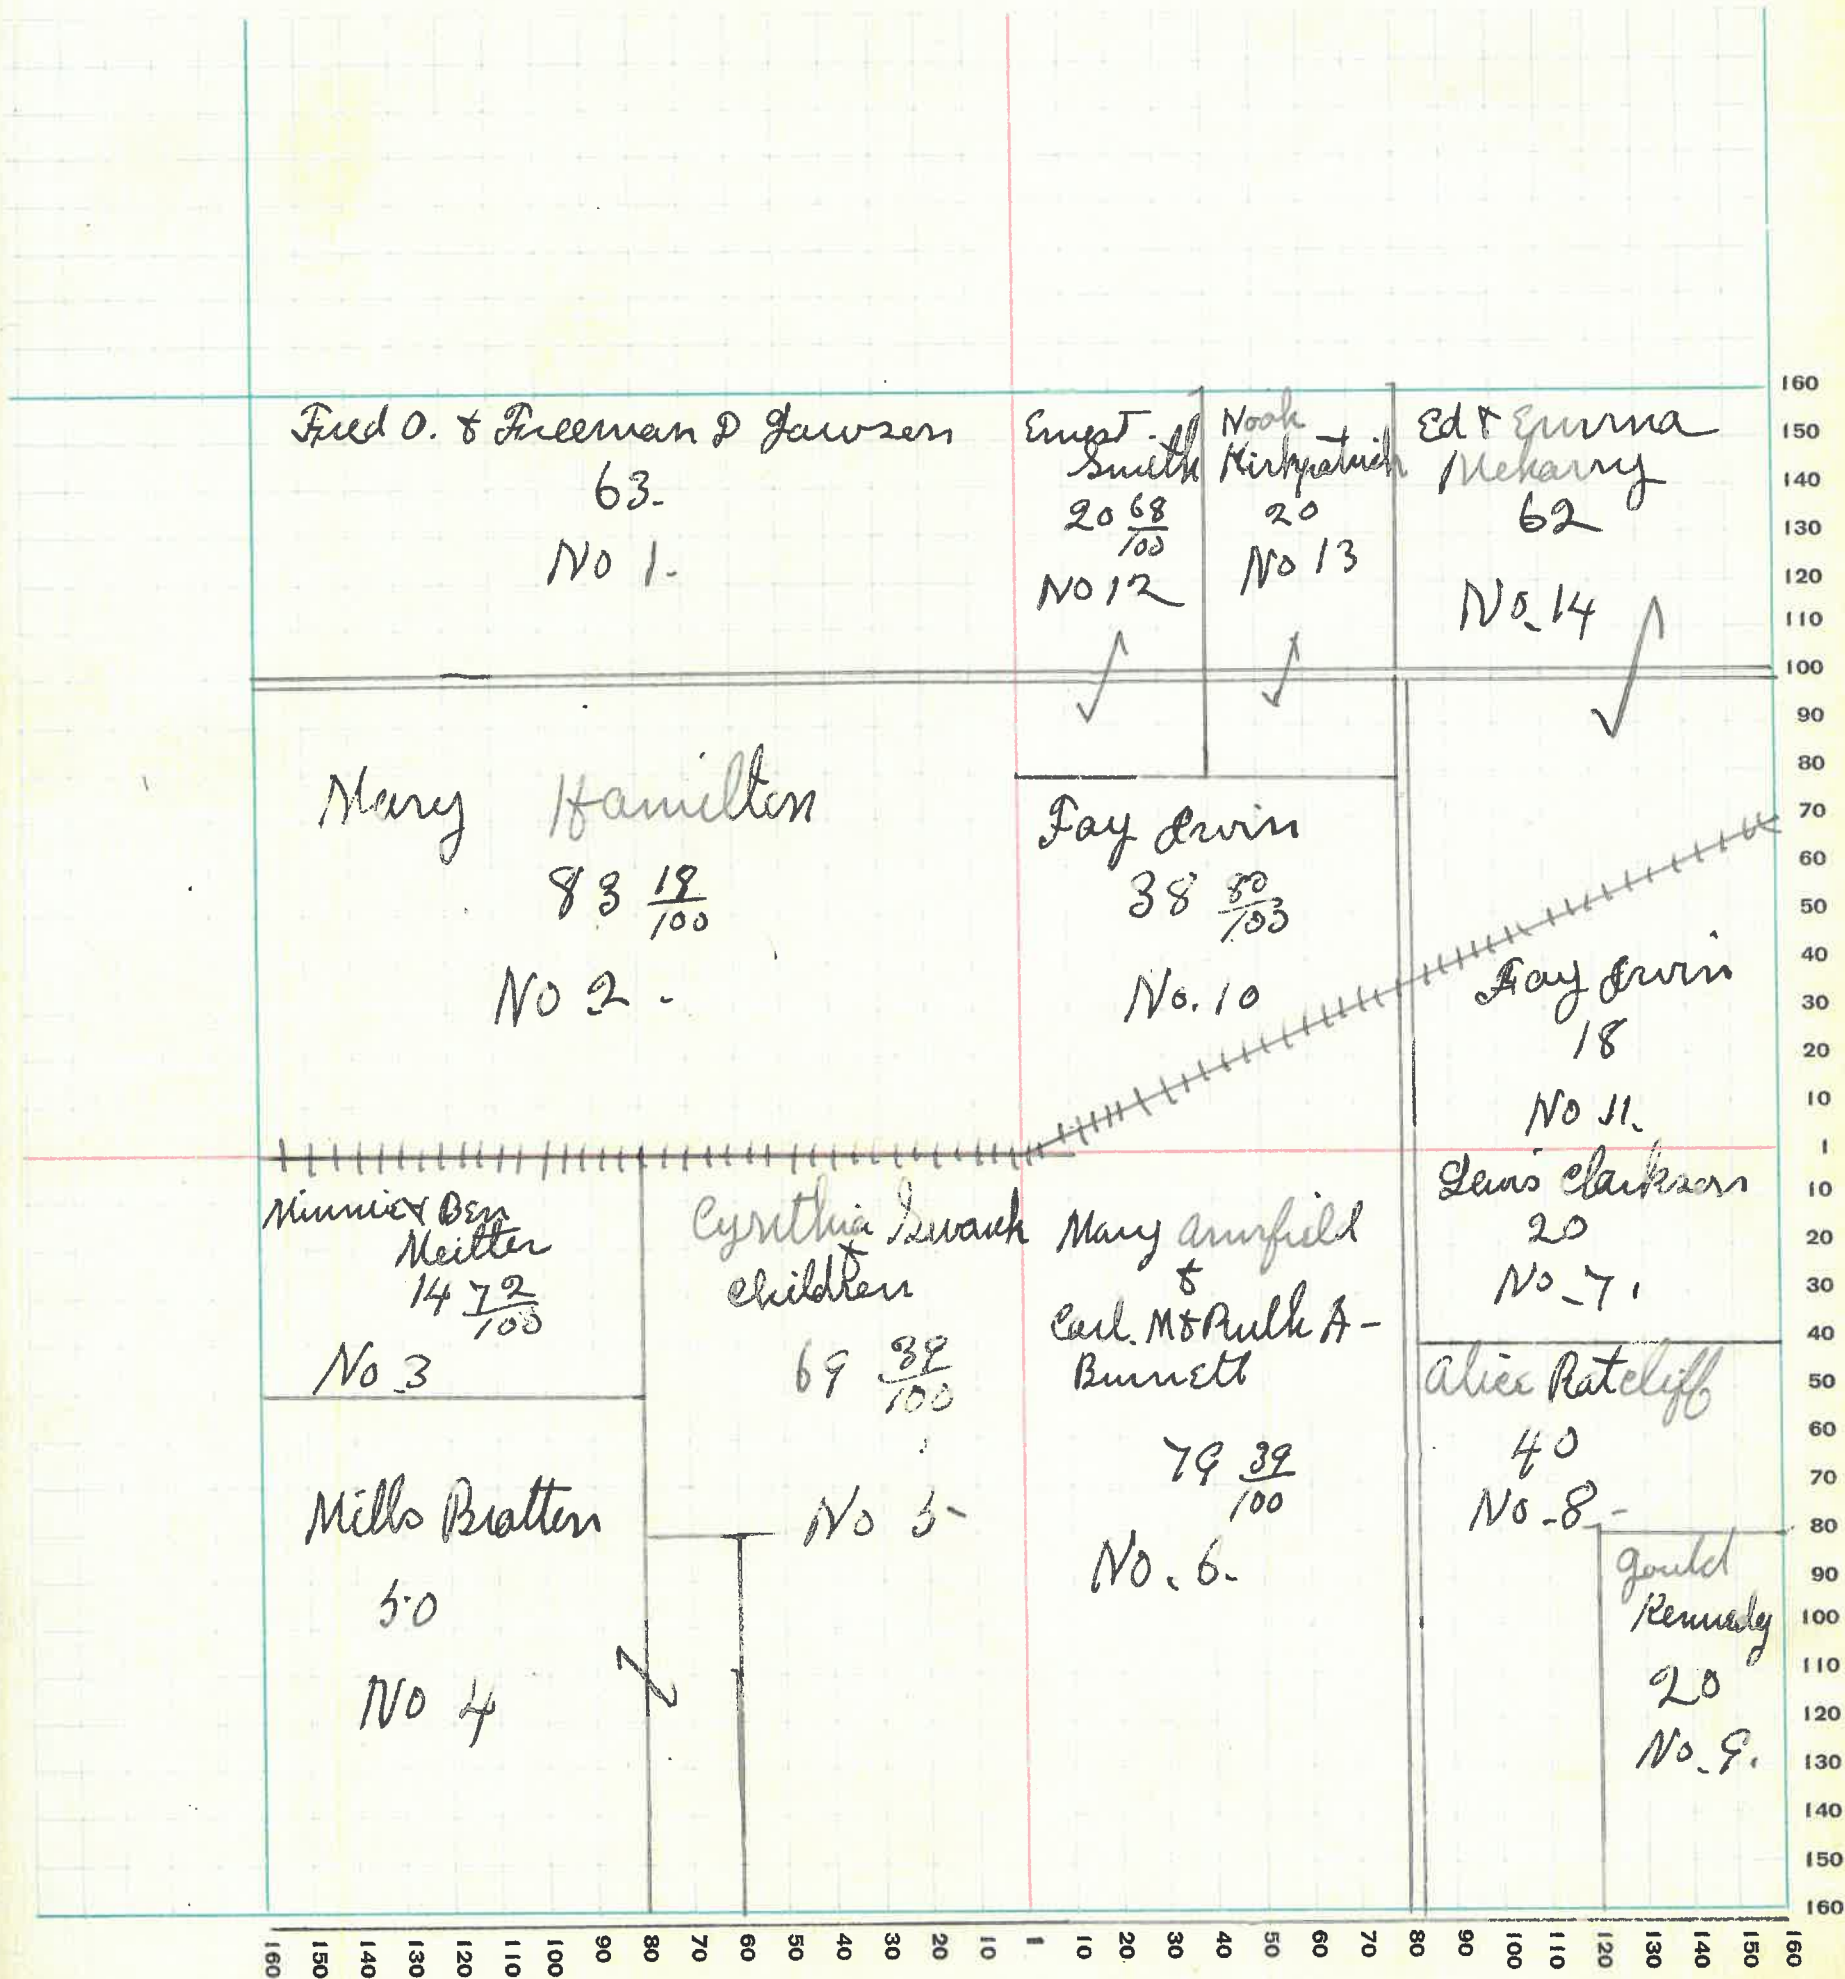 Fred O. & Freeman D Lawson
63.
No 1.
Ernest.
Smith
20 68/100
No 12
Noah
Kirkpatrick
20
No 13
Ed & Emma
62
No. 14
Mary Hamilton
83 19/100
No 2.
Fay Irvin
38 80/100
No. 10
Fay Irvin
18
No 11.
Minnie & Ben
14 72/100
No 3
Cynthia Swank
&
children
69 39/100
No 5-
Mary Armfield
&
Carl. M & Ruth A-
Burnett
79 39/100
No. 6.
Lewis Clarkson
20
No-7.
Alice Ratcliff
40
No-8-
Mills Bratten
50
No 4
Gould
Kennedy
20
No-9.
160
150
140
130
120
110
100
90
80
70
60
50
40
30
20
10
1
10
20
30
40
50
60
70
80
90
100
110
120
130
140
150
160
160 150 140 130 120 110 100 90 80 70 60 50 40 30 20 10 1 10 20 30 40 50 60 70 80 90 100 110 120 130 140 150 160